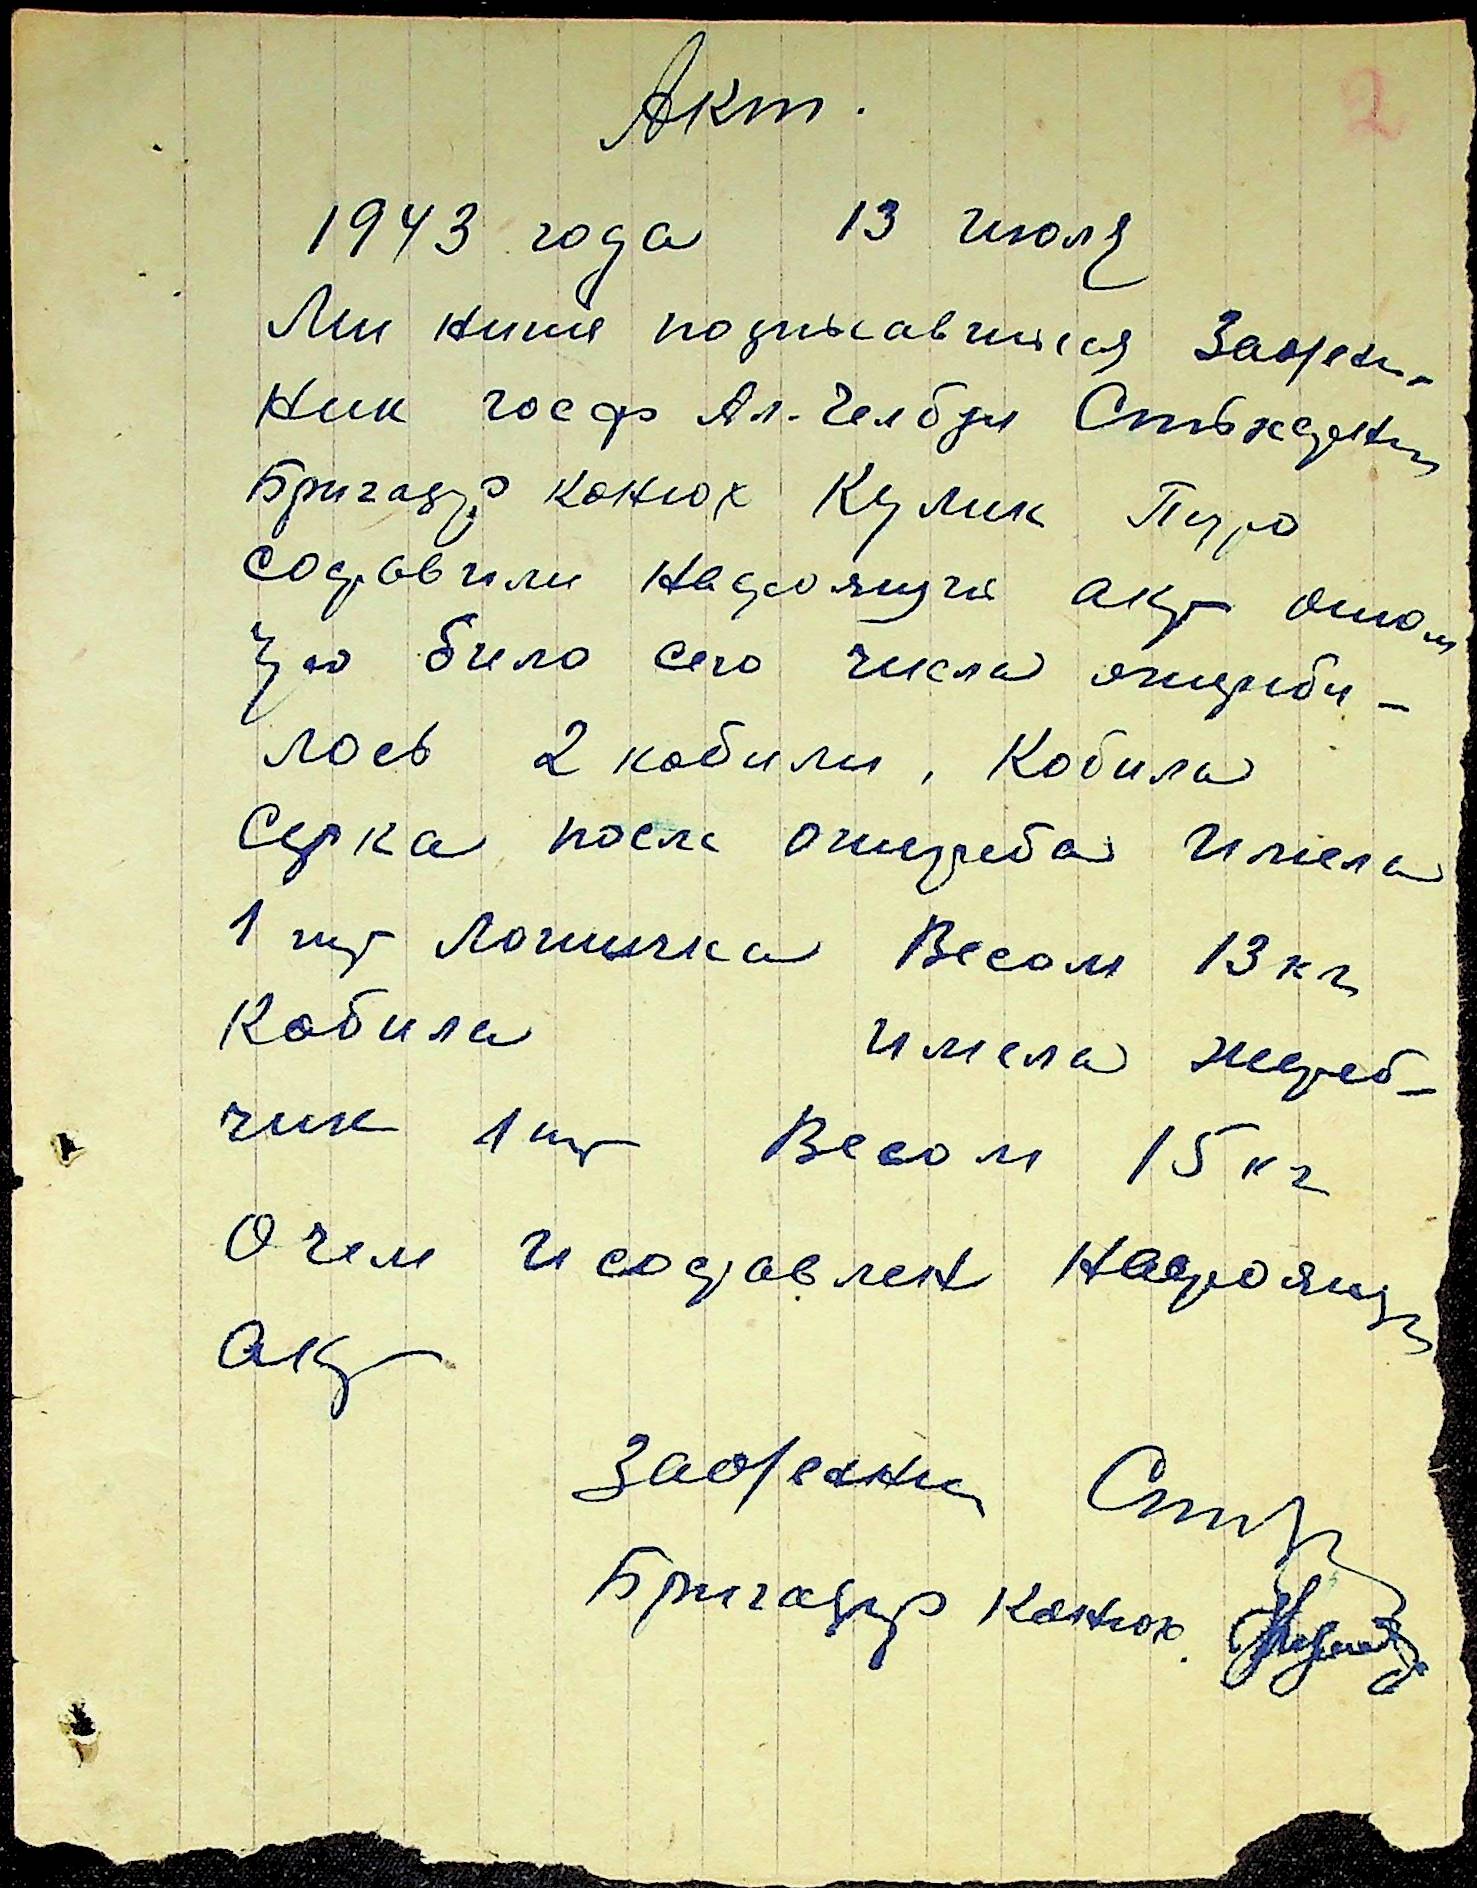 2
Акт.
1943 года 13 июля
Ми ниже подписавшиеся Заотех-
ник госф Ал.-Челбун
Бригадир конюх Кулик Петро
составили настоящий акт отом
что било сего числа ожереби-
лось 2 кобили, Кобила
Серка после ожереба имела
1 шт Лошичка Весом 13 кг
Кобила имела жереб-
чик 1 шт Весом 15 кг
О чем и составлен настоящи
акт
Заотехни
Бригадир конюх.